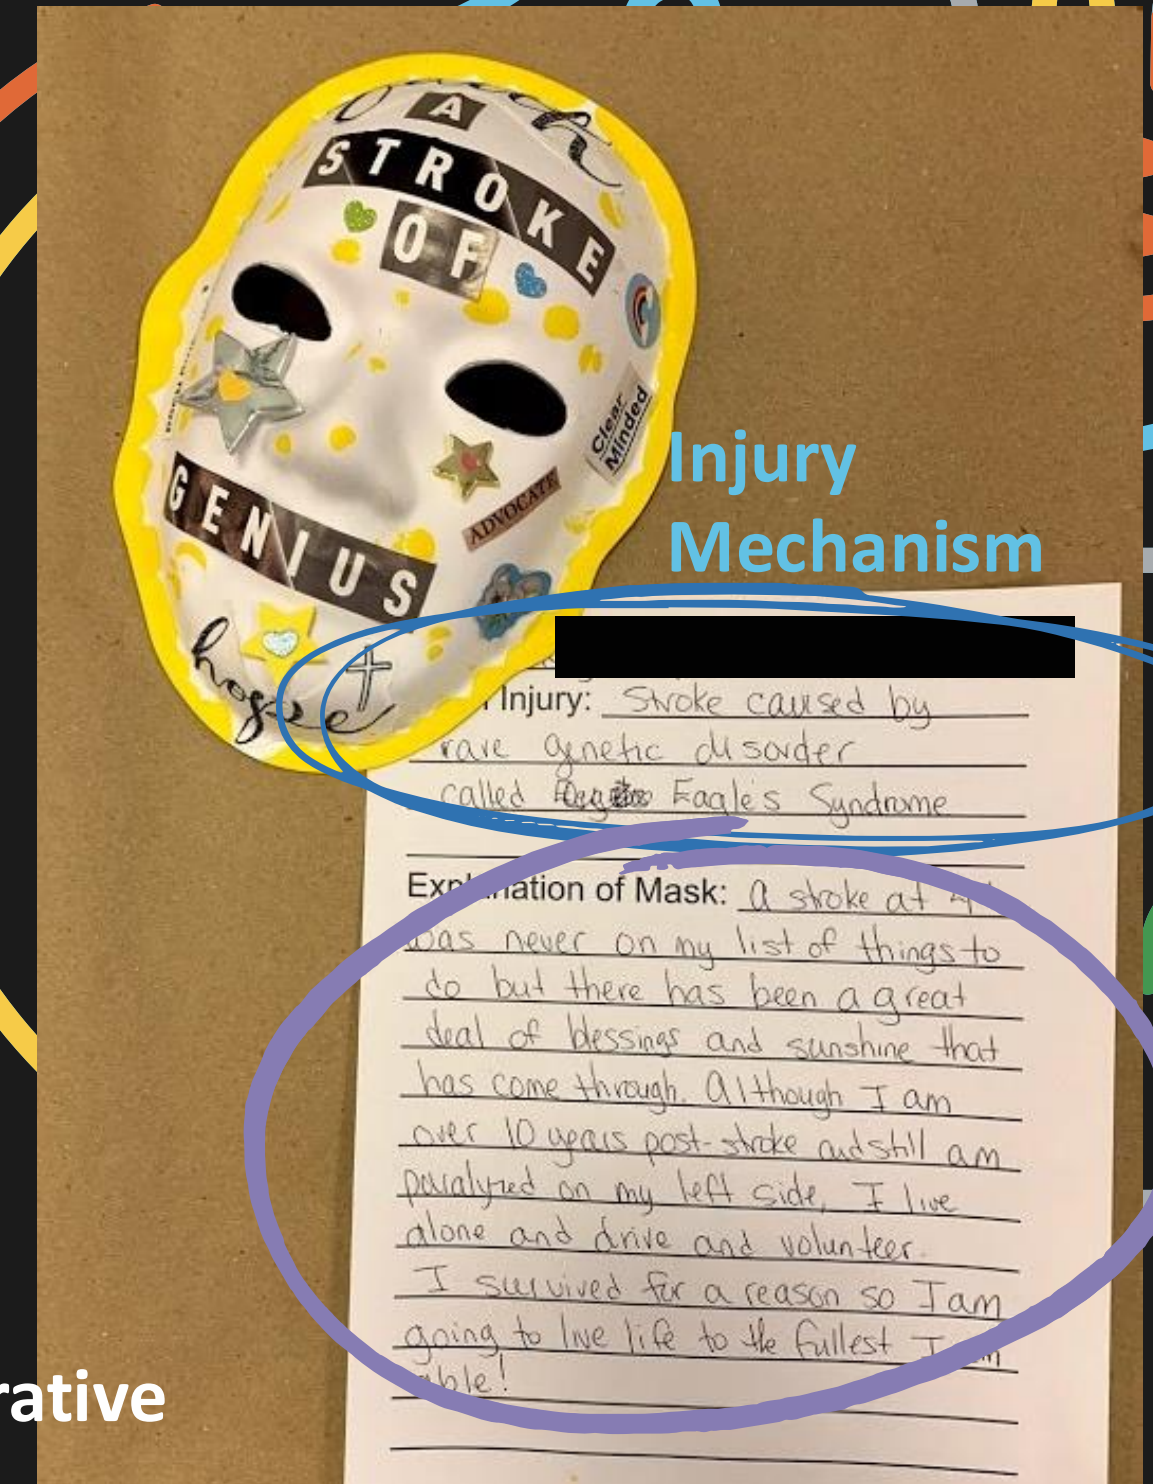 A
STROKE
OF
Clear
Minded
ADVOCATE
GENIUS
hope
Injury
Mechanism
Injury: Stroke caused by
rare genetic disorder
called Eagle's Syndrome
Explanation of Mask: A stroke at
was never on my list of things to
do but there has been a great
deal of blessings and sunshine that
has come through. Although I am
over 10 years post-stroke and still am
paralyzed on my left side, I live
alone and drive and volunteer.
I survived for a reason so I am
going to live life to the fullest I am
able!
rative